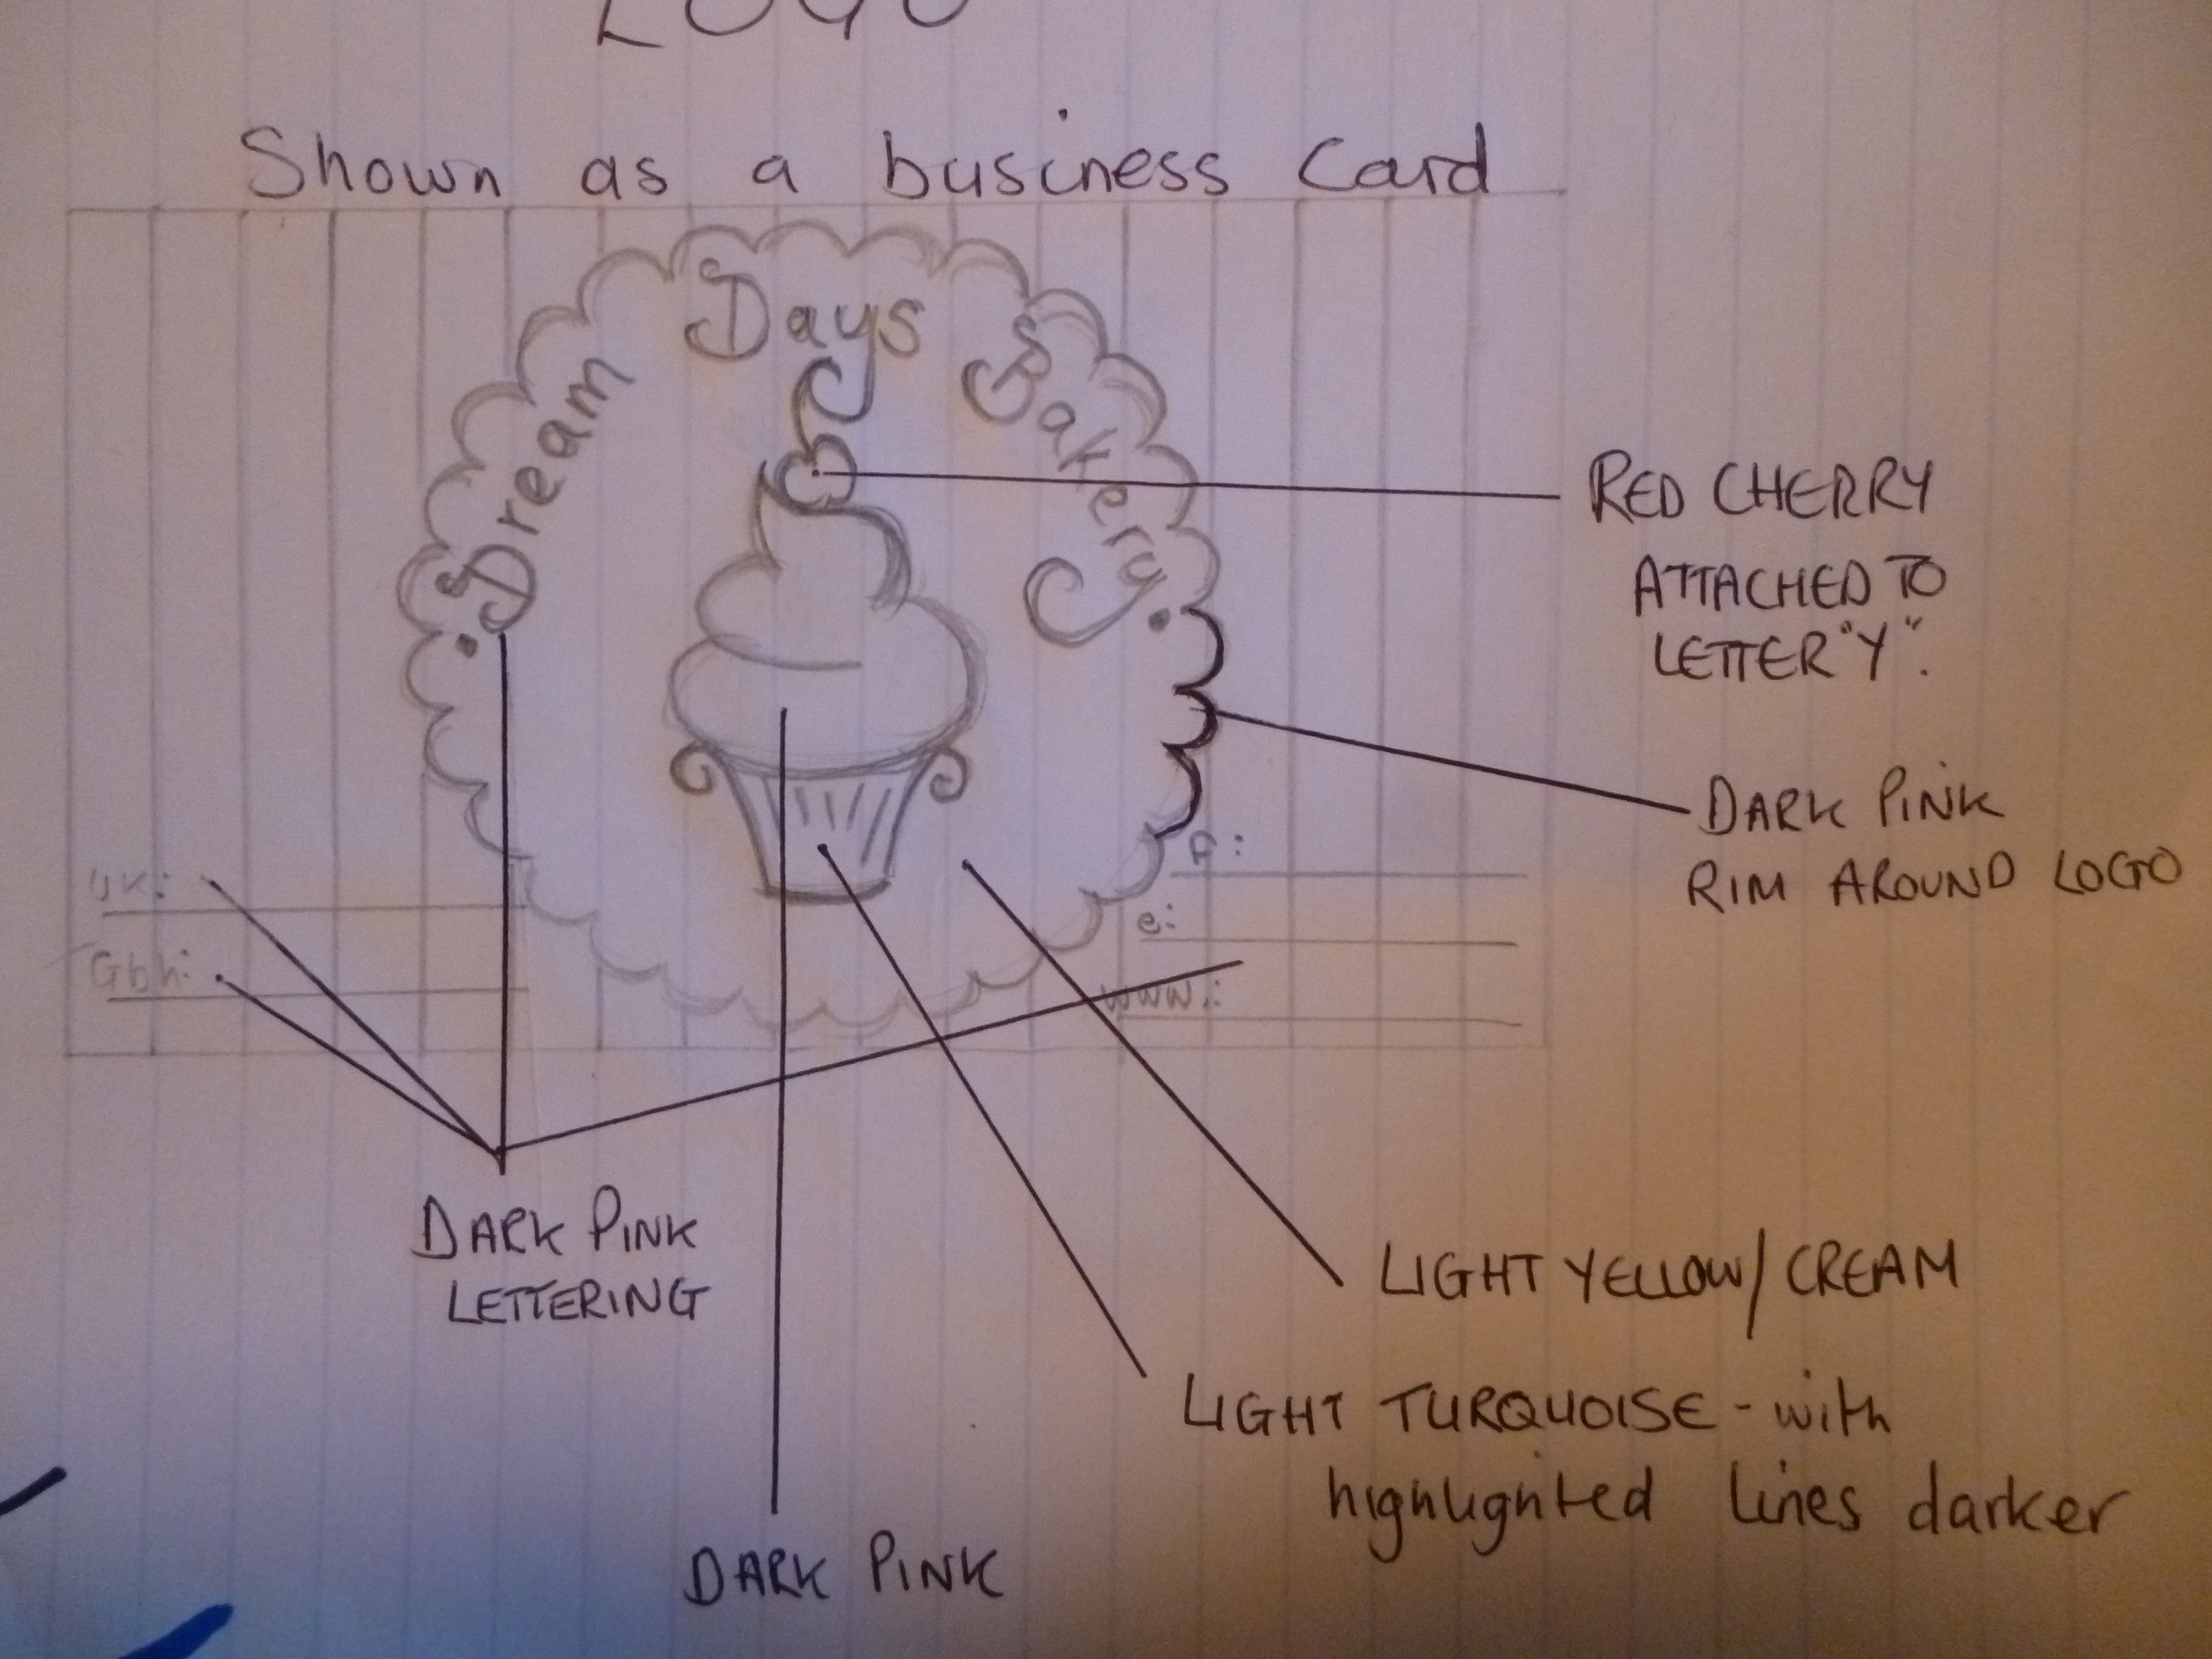 LOGO
Shown as a business Card
Dream Days Bakery
RED CHERRY
ATTACHED TO
LETTER "Y".
DARK PINK
RIM AROUND LOGO
UK:
Gbh:
f:
e:
www.:
DARK PINK
LETTERING
LIGHT YELLOW/CREAM
LIGHT TURQUOISE - with
highlighted lines darker
DARK PINK